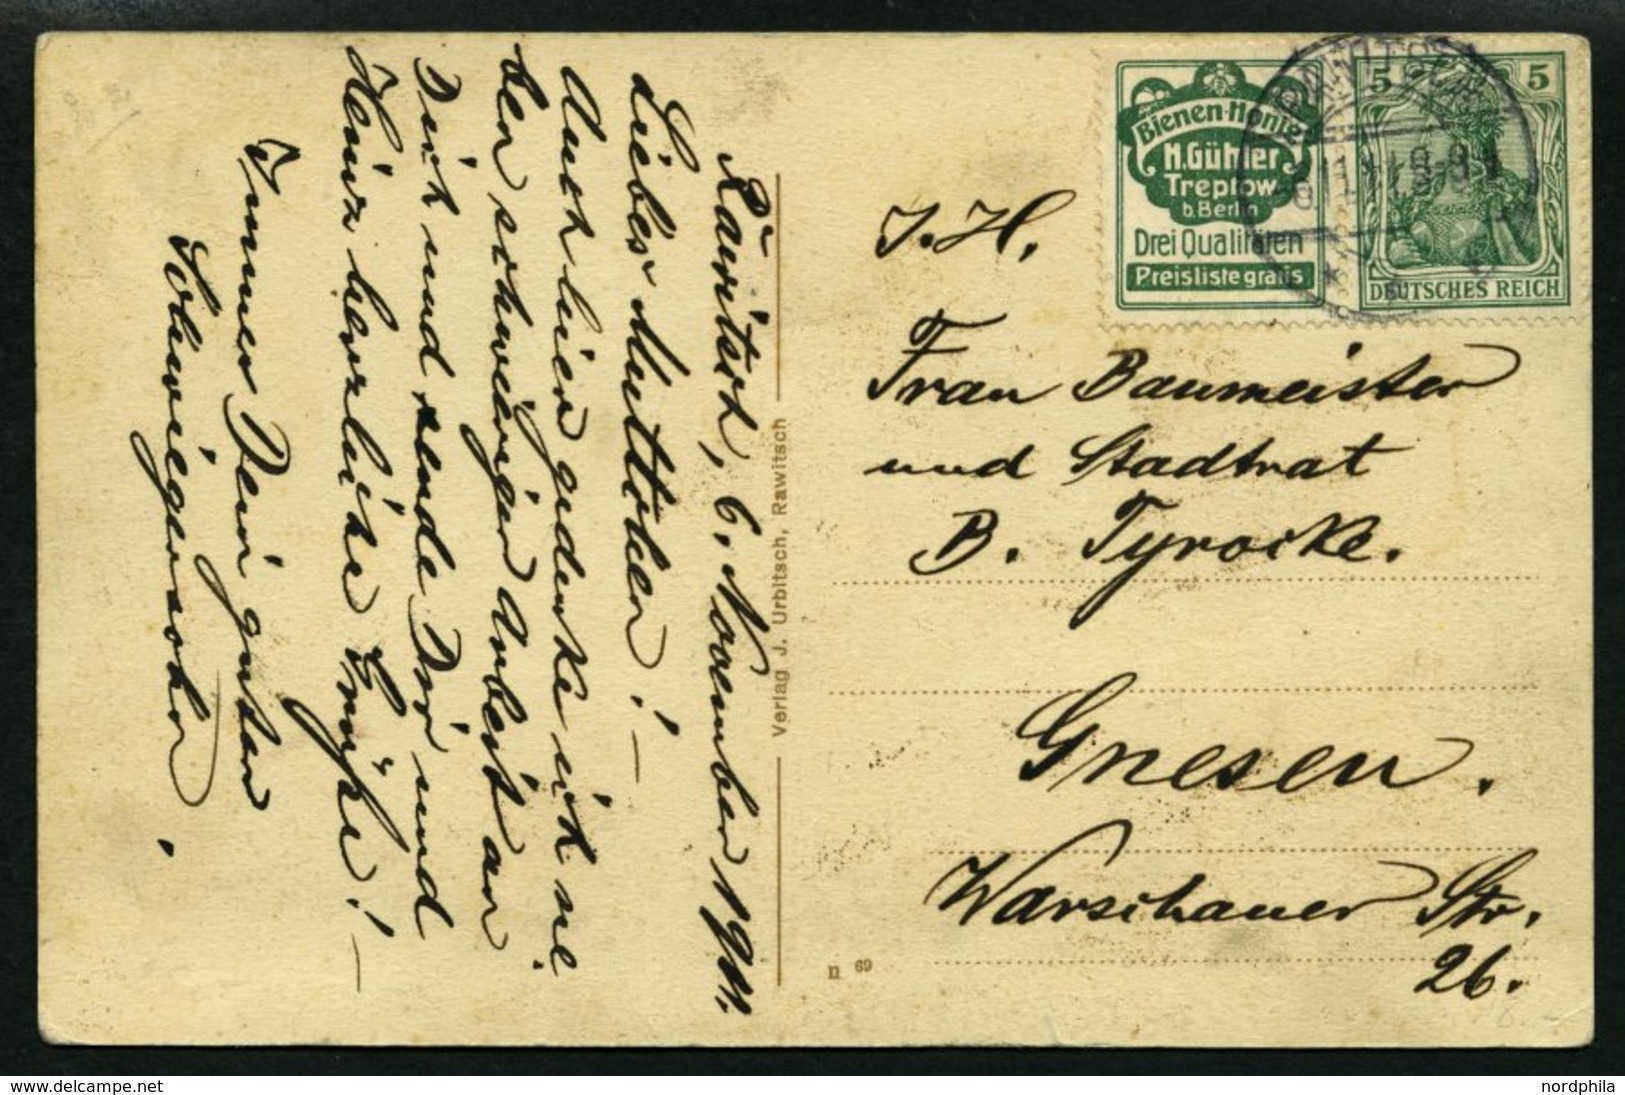 Rawitsch, 6. November 1911.
Liebes Muttchen! —
Auch hier gedenke ich nie
bei schwieriger Arbeit an
Dich und sende Dir und
Heinz herzliche Grüße! —
Immer Dein guter
Schwiegersohn.
Verlag J. Urbitsch, Rawitsch
n 69
Bienen-Honig
H. Gühler
Treptow
b. Berlin
Drei Qualitäten
Preisliste gratis
5 5
DEUTSCHES REICH
RAWITSCH
I. H.
Frau Baumeister
und Stadtrat
B. Tyrocke.
Gnesen.
Warschauer Str.
26.
www.delcampe.net
nordphila